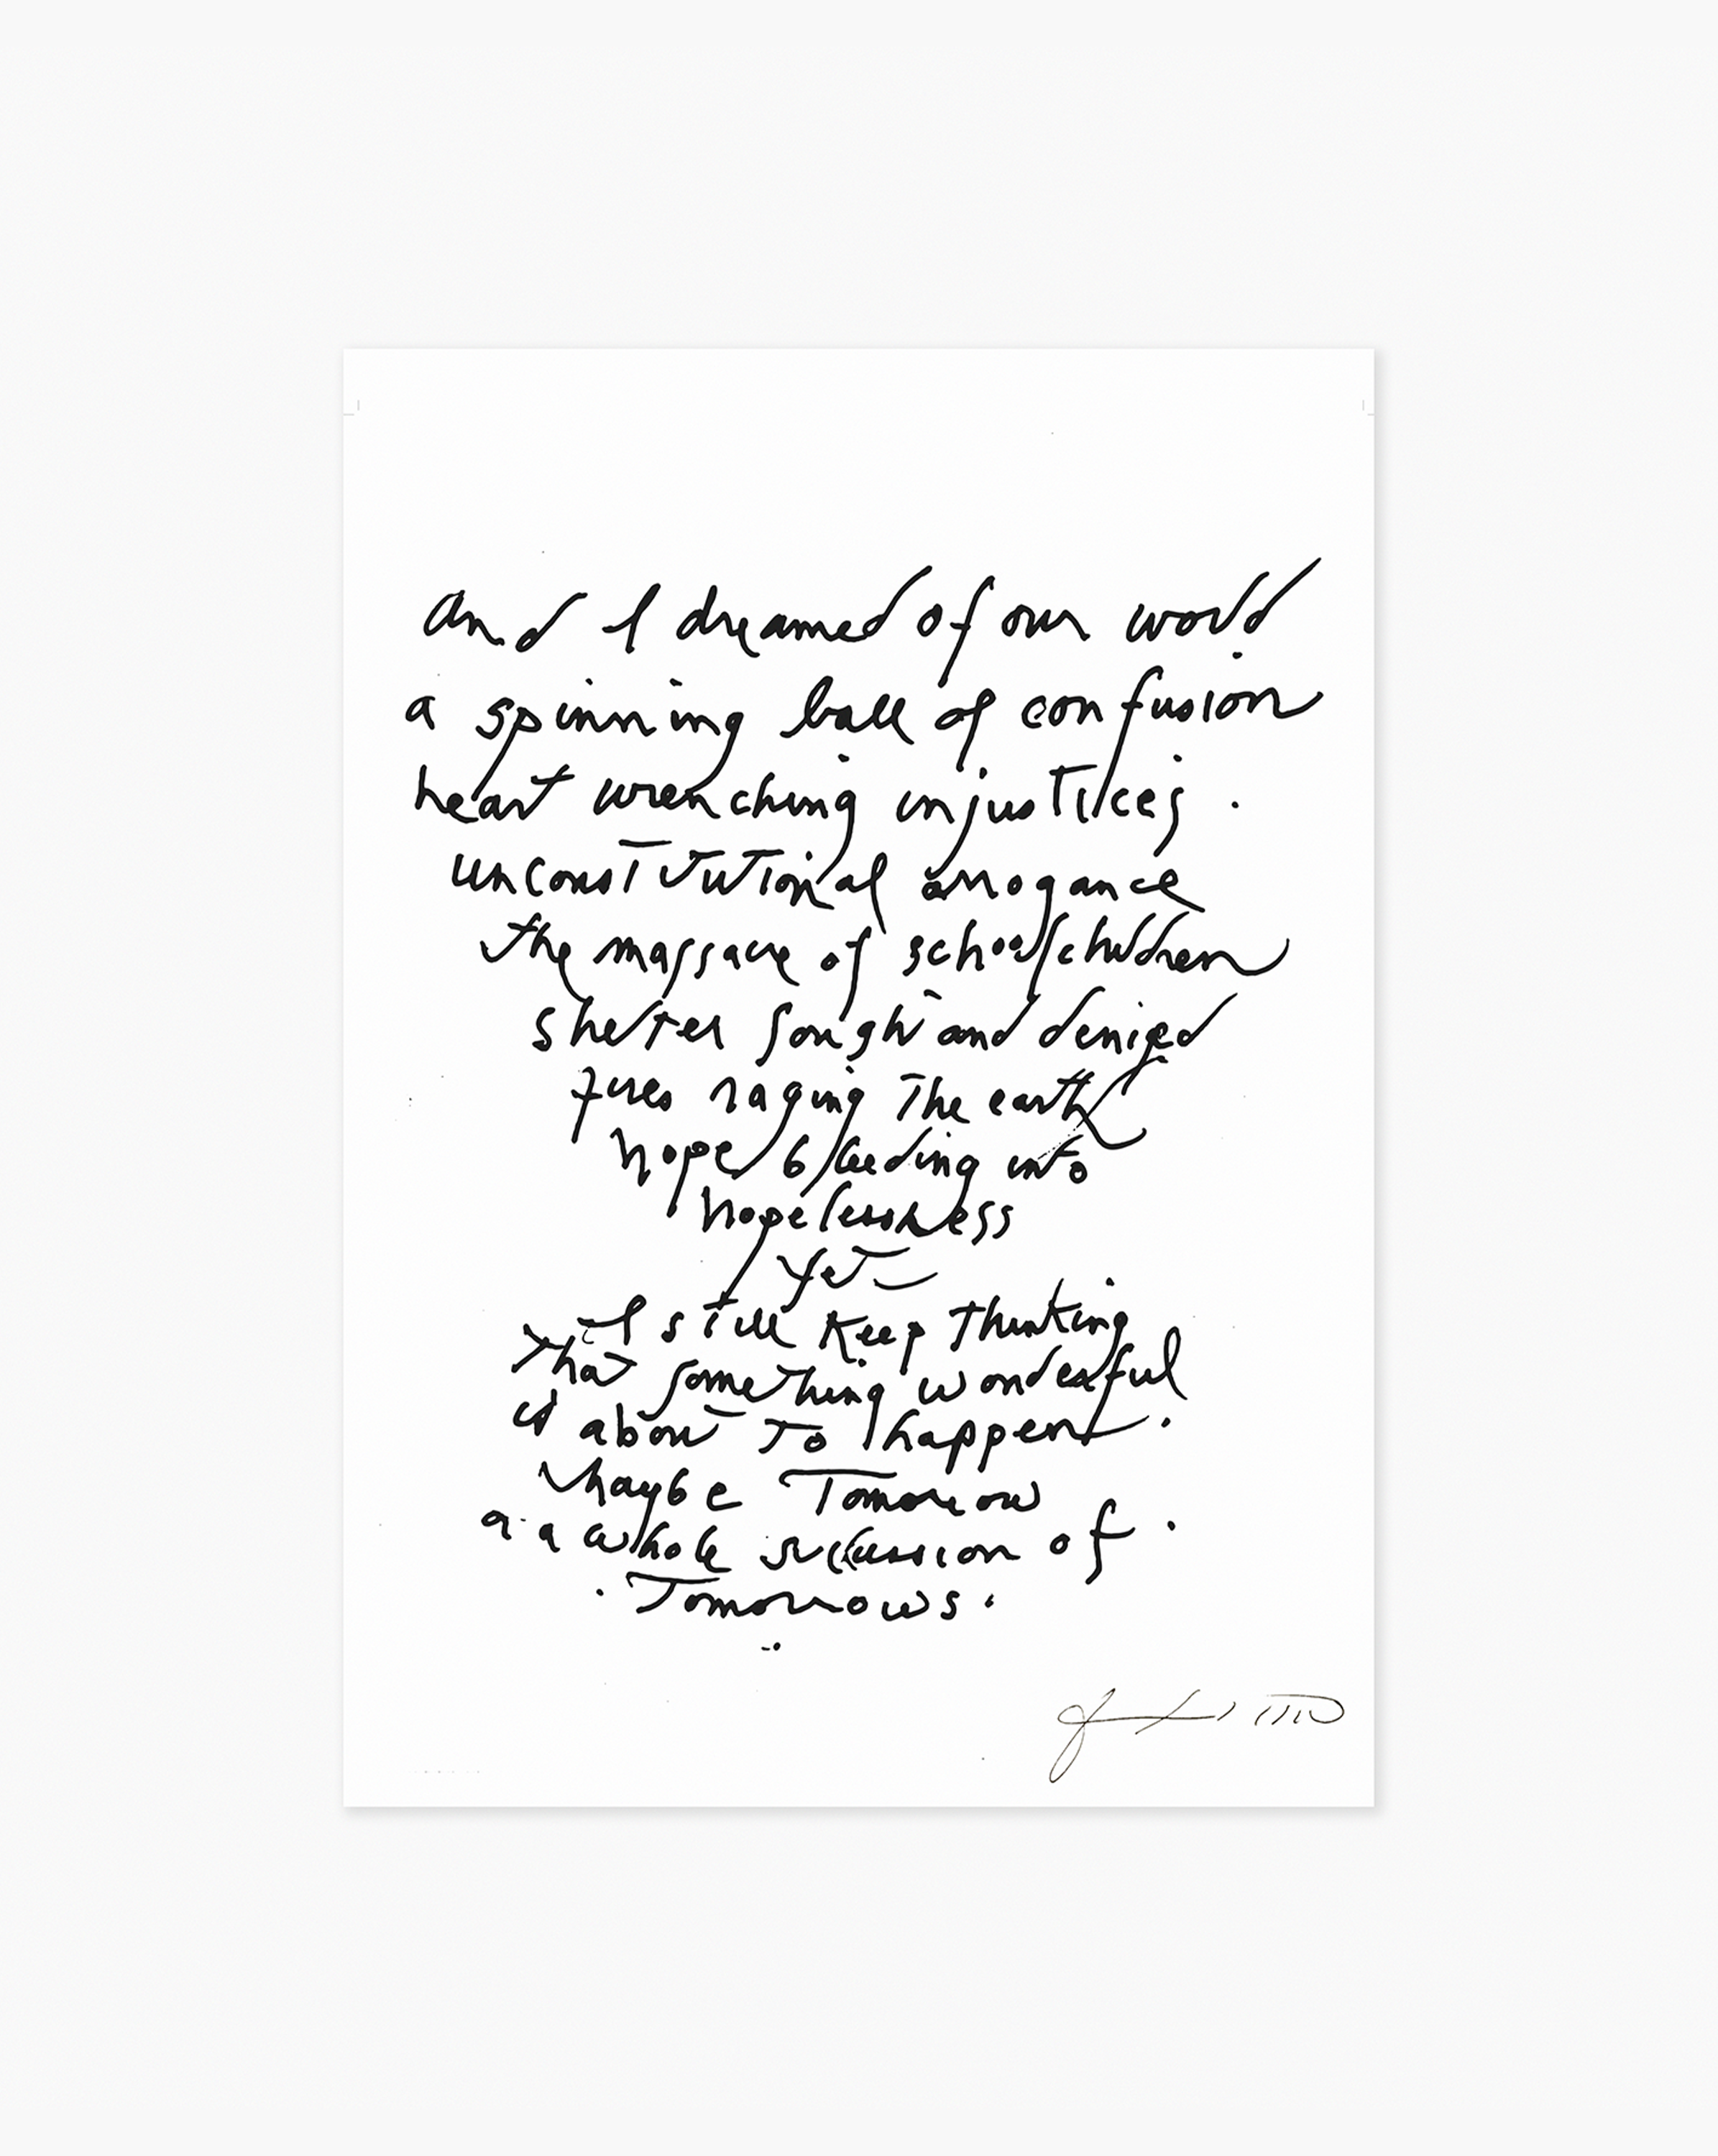 And I dreamed of our world
a spinning ball of confusion
heart wrenching injustices.
unconstitutional arrogance
the massacre of schoolchildren
shelter sought and denied
fires raging The earth
hope bleeding into
hopelessness
Yet—
I still Keep Thinking
That something wonderful
is about To happen.
Maybe Tomorrow
a whole succession of
Tomorrows.